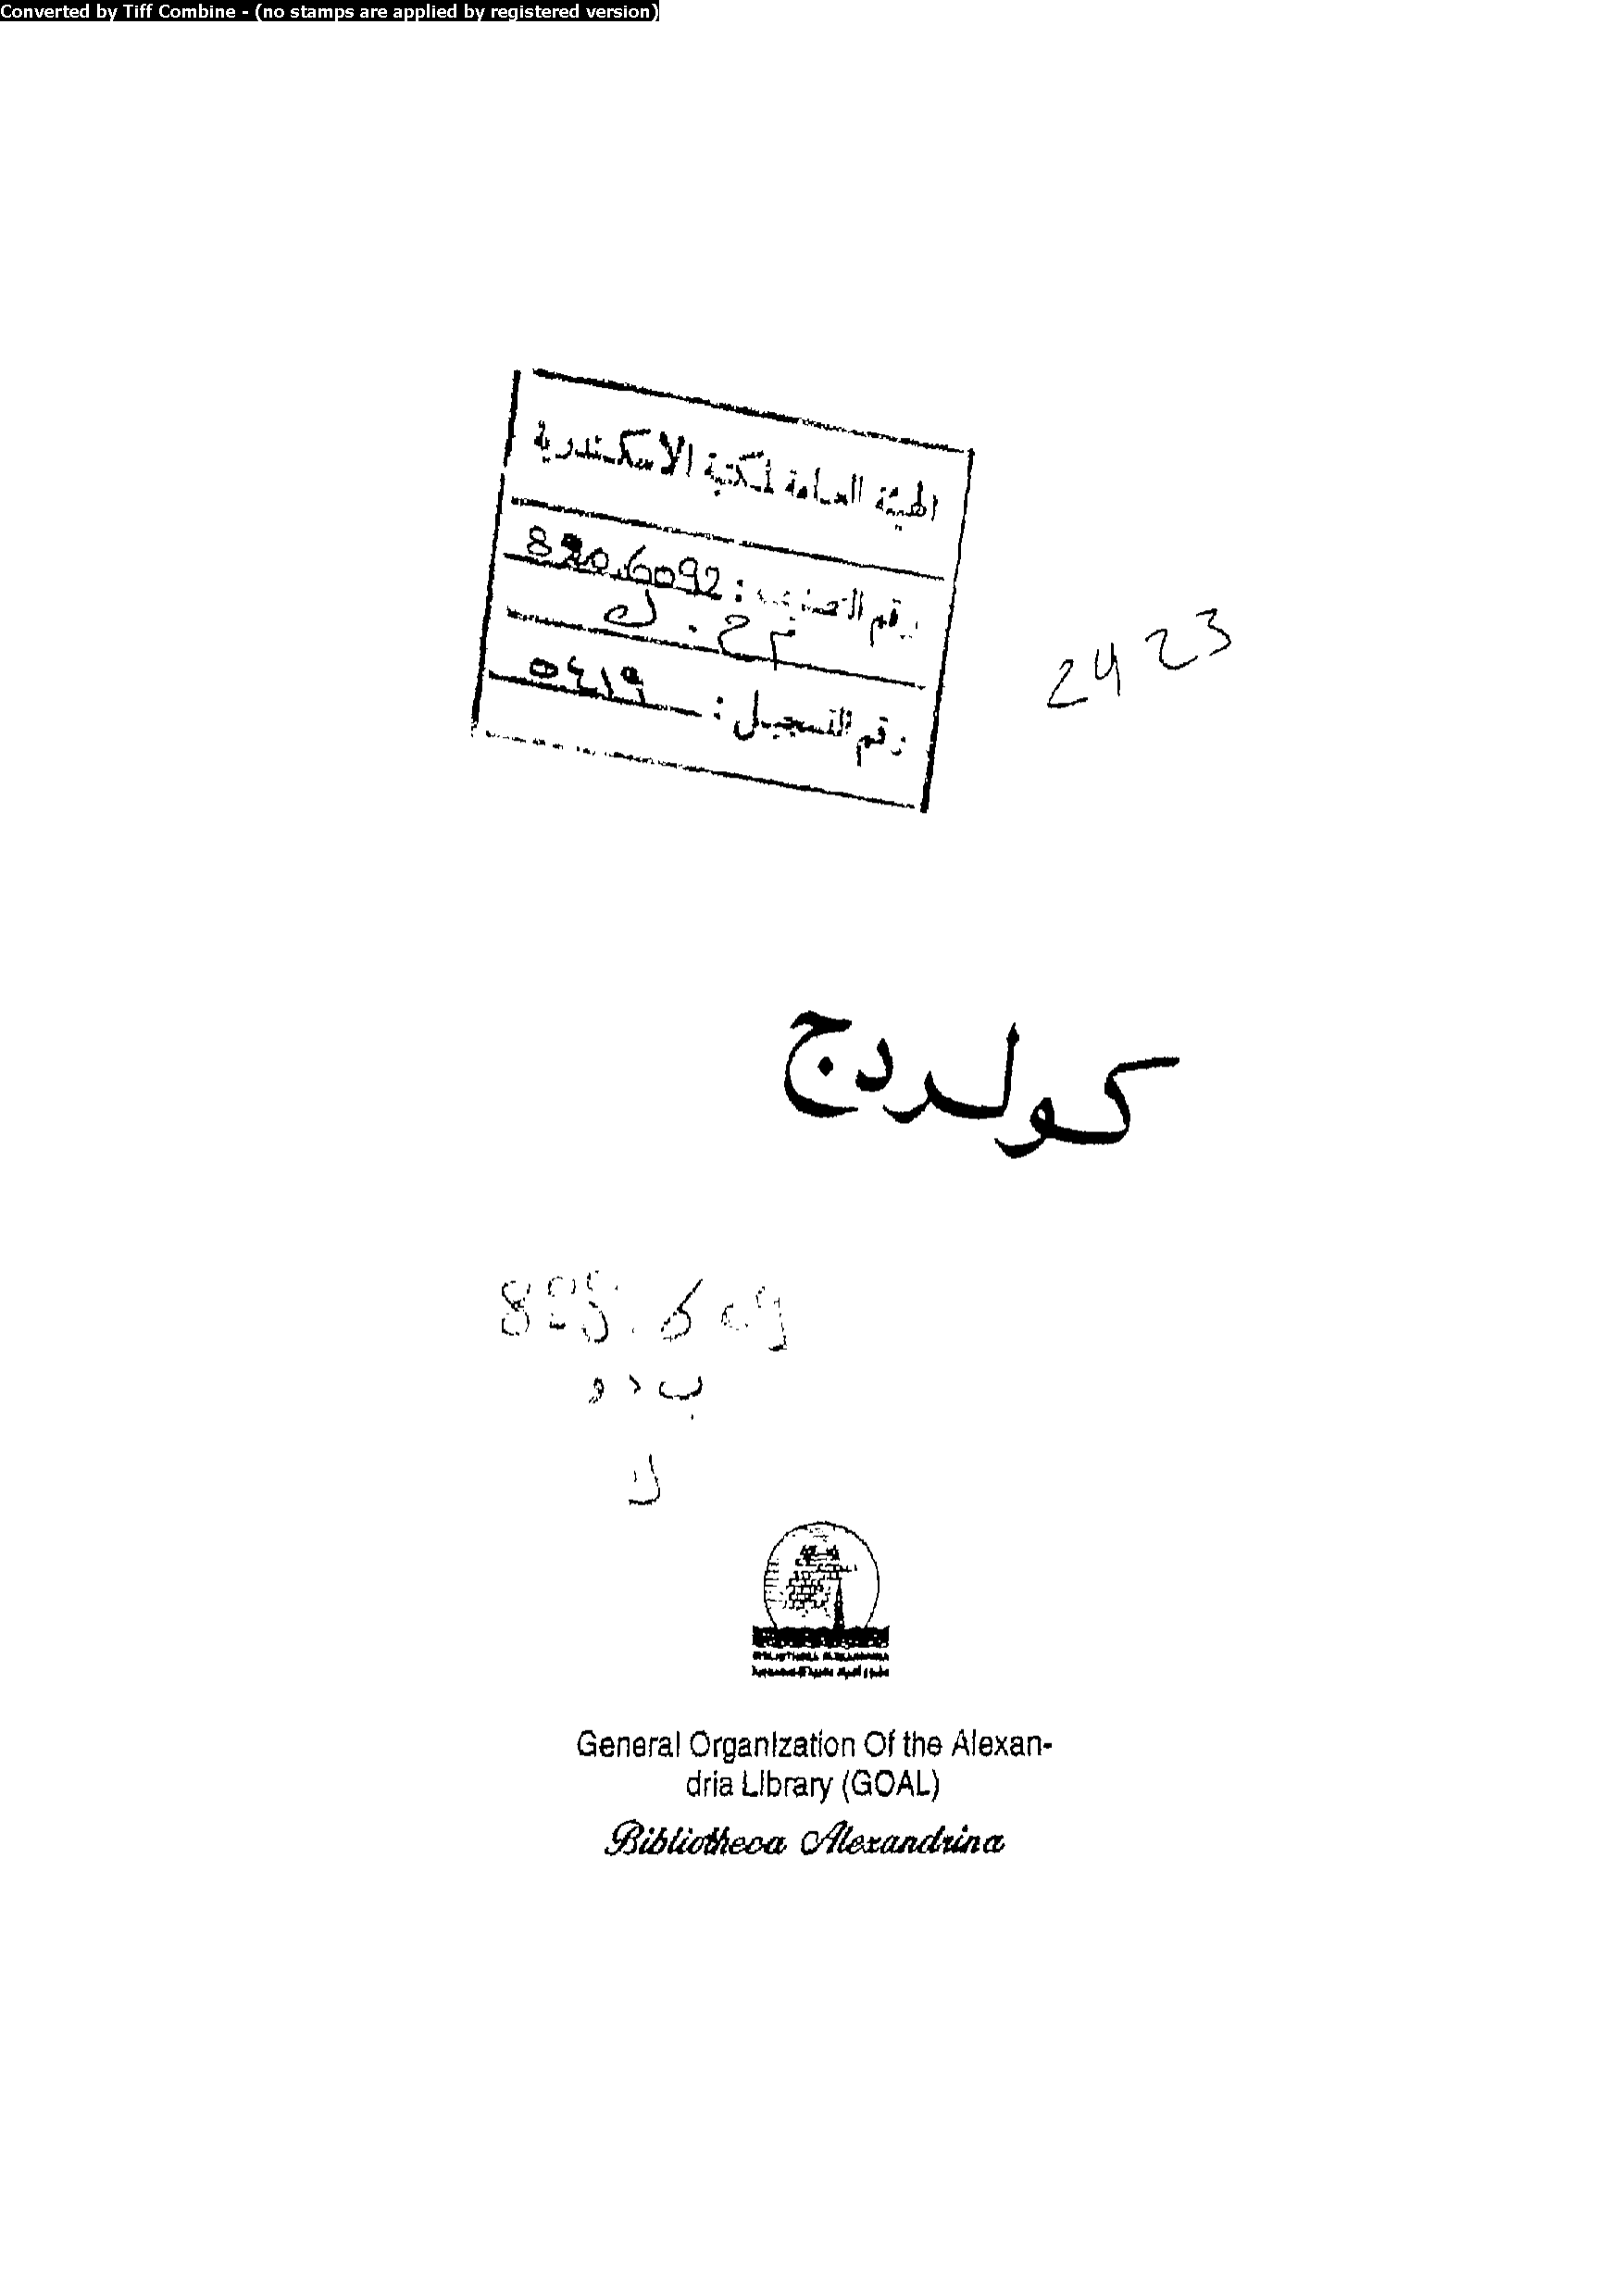 Converted by Tiff Combine - (no stamps are applied by registered version)
الهيئة العامة لمكتبة الاسكندرية
رقم التصنيف : 820.6092
رقم التسجيل : ٥٤١٩
2423
كولردج
ب د و
ك
General Organization Of the Alexan-
dria Library (GOAL)
Bibliotheca Alexandrina